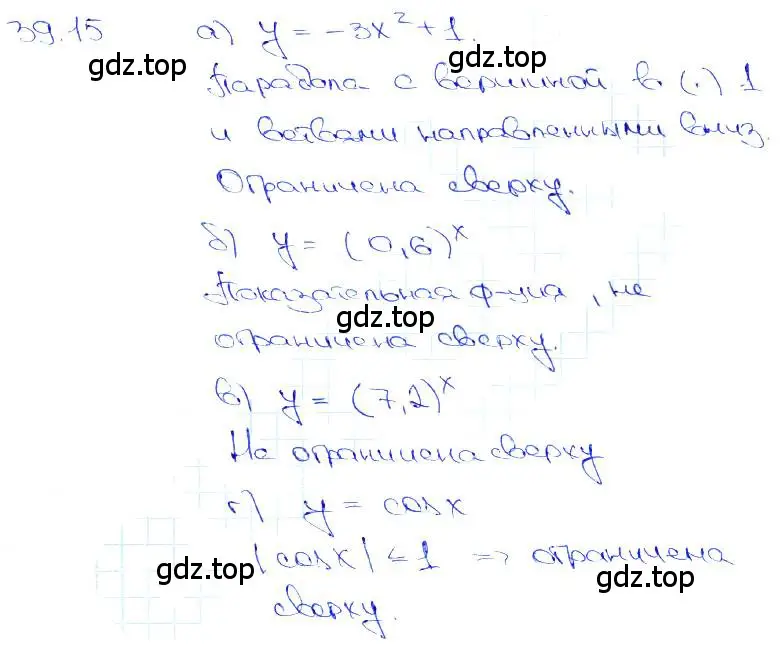 39.15 а) y = -3x² + 1.
gdz.top gdz.top
Парабола с вершиной в (·) 1
и ветвями направленными вниз.
Ограничена сверху.
б) y = (0,6)^x
Показательная ф-ция, не
gdz.top
ограничена сверху.
в) y = (7,2)^x
Не ограничена сверху
г) y = cosx
|cosx| ≤ 1 => ограничена
gdz.top gdz.top
сверху.